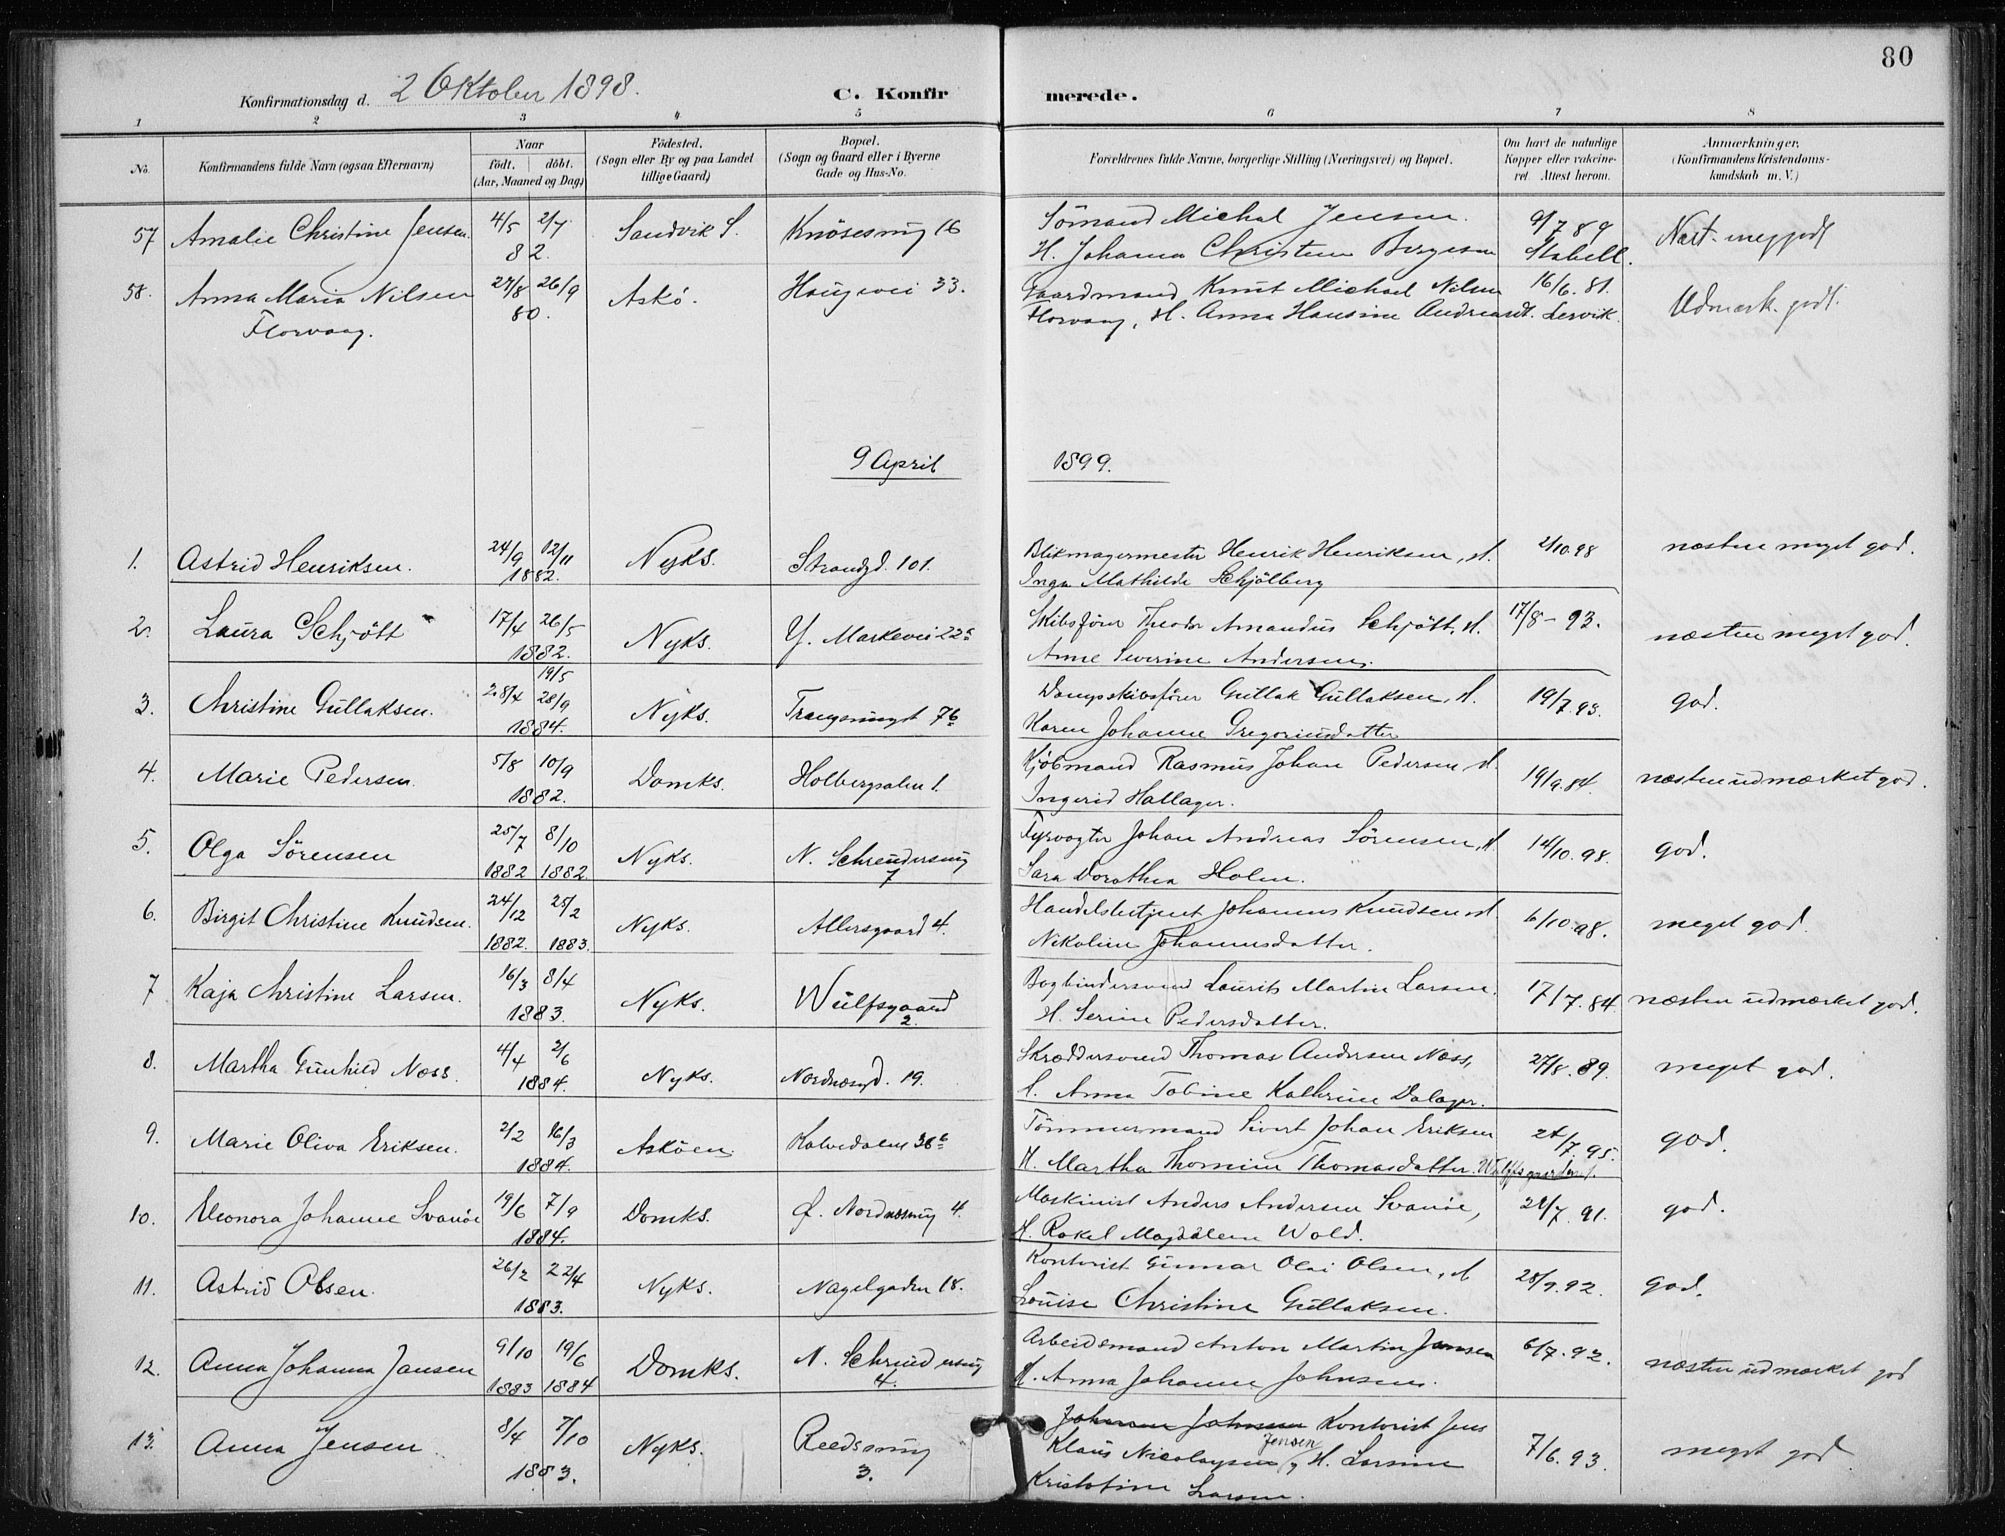 80
Konfirmationsdag d. 2 Oktober 1898.
C. Konfirmerede.
1 2 3 4 5 6 7 8
No. Konfirmandens fulde Navn (ogsaa Efternavn) Naar født. døbt. (Aar, Maaned og Dag) Fødested. (Sogn eller By og paa Landet tillige Gaard) Bopæl. (Sogn og Gaard eller i Byerne Gade og Hus-No. Forældrenes fulde Navne, borgerlige Stilling (Næringsvei) og Bopæl. Om havt de naturlige Kopper eller vakcineret. Attest herom. Anmærkninger. (Konfirmandens Kristendomskundskab m. V.)
57 Amalie Christine Jensen. 4/5 2/7 Sandvik S. Knøsesmug 16 Sömand Michal Jensen. 9/7 89 Næst. meg godt
82. H. Johanna Christine Stabell.
58. Anna Maria Nilsen 27/8 26/9 Askö. Haugevei 33. Gaardmand Knut Michael Nilsen 16/6. 81. Udmærk. godt.
Florvaag. 80. Florvaag, H. Anna Hansine Lervik.
9 April 1899.
1. Astrid Henriksen. 24/9 12/11 Nyks. Strandgd. 101. Blikmagermester Henrik Henriksen, H. 2/10.98 næsten meget god.
1882. Inga Mathilde Schjölberg
2. Laura Schjött 17/4 26/5 Nyks. Y. Markevei 22c Skibsfører Theodor Amandus Schjött, H. 17/8-93. næsten meget god.
1882. Anne Severine Andersen.
19/5
3. Christine Gullaksen. 28/4 28/9 Nyks. Trangesmuget 7b Dampskibsfører Gullak Gullaksen, H. 19/7.93. god.
1884. Karen Johanne Gregoriusdatter
4. Marie Pedersen. 5/8 10/9 Domks. Holbergsalm 1. Kjöbmand Rasmus Johan Pedersen H. 19/9.84. næsten udmærket god.
1882. Ingerid Hallager.
5. Olga Sörensen 25/7 8/10 Nyks. N. Schreudersmug Fyrvogter Johan Andreas Sörensen, H 14/10.98. god.
1882 1882 7 Sara Dorothea Holm.
6. Birgit Christine Knudsen. 24/12 25/2 Nyks. Allersgaard 4. Handelsbetjent Johannes Knudsen H 6/10.98. meget god.
1882. 1883. Nikoline Johannesdatter.
7 Kaja Christine Larsen. 16/3 8/4 Nyks. Wulfsgaard Bogbindersvend Laurits Martin Larsen. 17/7.84. næsten udmærket god.
1883. 2. H. Serine Pedersdatter.
8. Martha Gunhild Næss. 4/4 2/6 Nyks. Nordnæsgd. 19. Skræddersvend Thomas Andersen Næss, 27/8.89. meget god.
1884. H. Anna Tobine Kathrine Dalager.
9. Marie Oliva Eriksen. 2/2 16/3 Asköen. Kalvedalen 36b Tömmermand Sivert Johan Eriksen 24/7.95. god.
1884. H. Martha Thomine Thomasdatter.
10. Eleonora Johanne Svanöe 19/6 7/9 Domks. Ø. Nordnæsmug 4. Maskinist Anders Andersen Svanöe, 21/7.91. god.
1884. H. Rakel Magdalene Wold.
11. Astrid Olsen. 26/2 22/4 Nyks. Nagelgaden 18. Kontorist Gunnar Olai Olsen, H 28/9.92. god.
1883. Louise Christine Gullaksen.
12. Anna Johanna Jansen 9/10 19/6 Domks. N. Schreudersmug Arbeidsmand Anton Martin Jansen 6/7.92. næsten udmærket god
1883 1884 4. H. Anna Johanne Johnsen.
13. Anna Jensen 8/4 7/10 Nyks. Reedssmug Kontorist Jens 7/6.93. meget god.
1883. 3. Klaus Nicolaysen Jensen, H. Larsine
Kristofine Larsen.